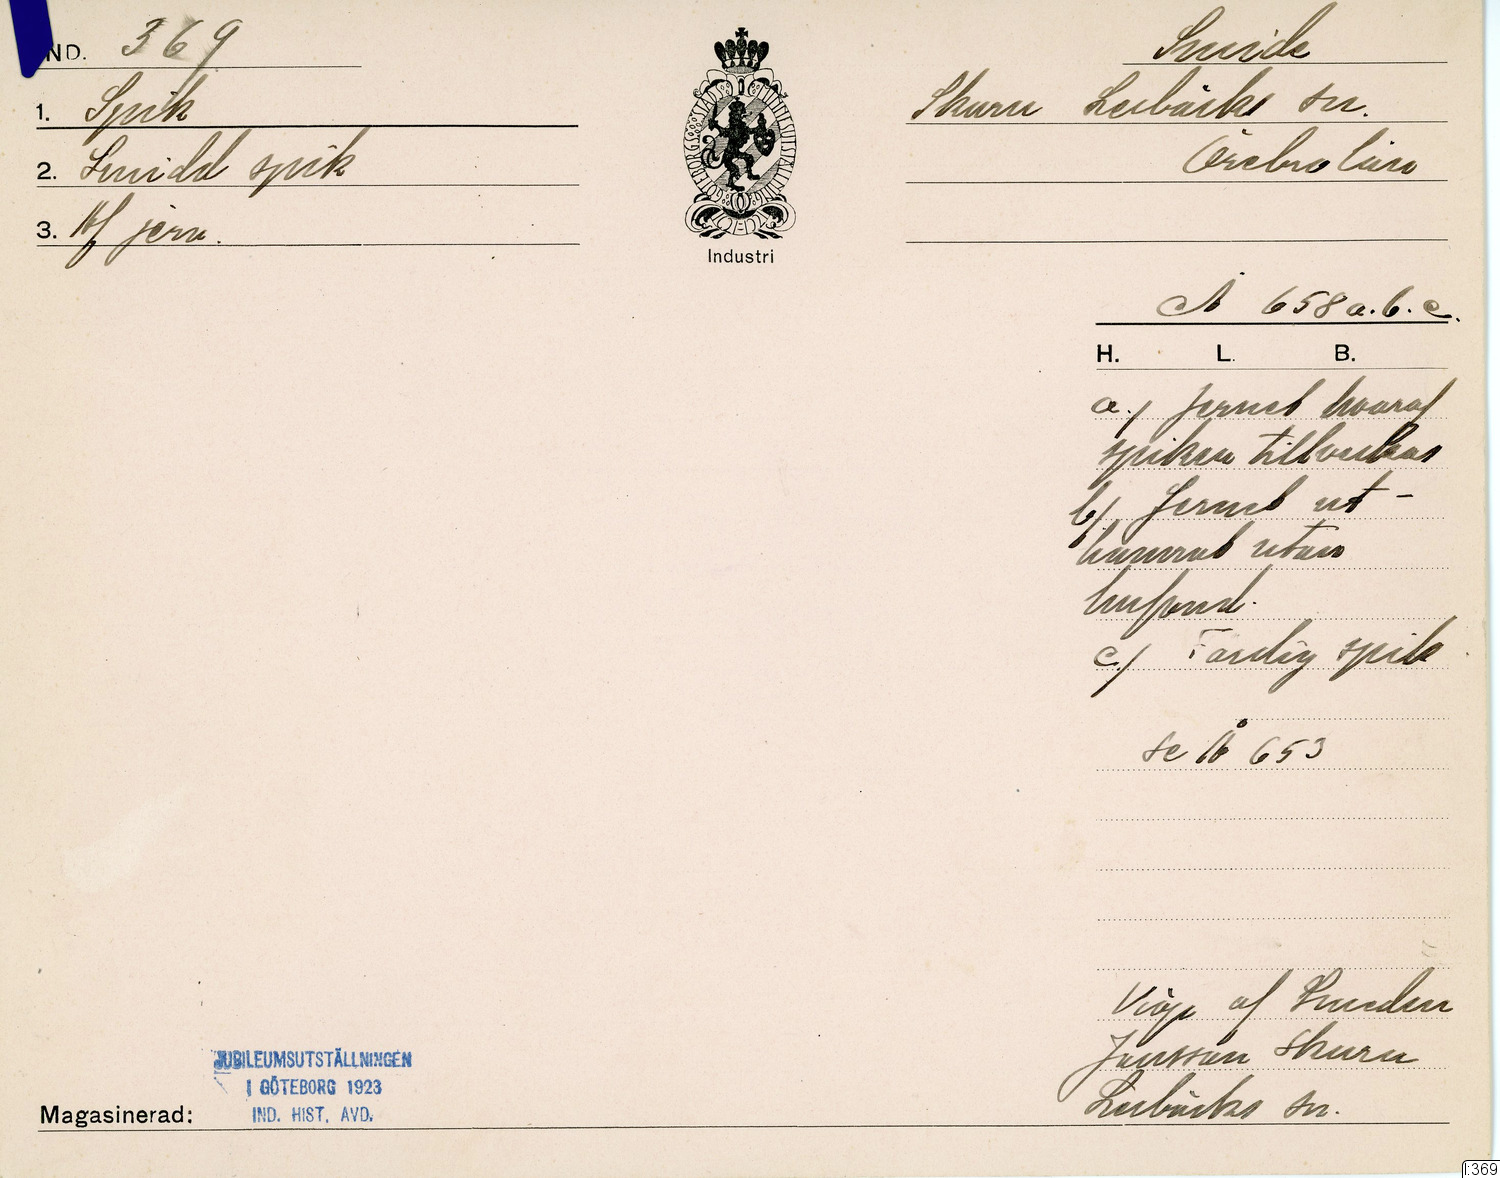 IND. 369
Smide
1. Spik
Skuru Lerbäcks sn.
2. Smidd spik
Örebro län
3. Af jern.
GÖTEBORGS STADS JUBILEUMSUTSTÄLLNING
Industri
Å 658 a. b. c.
H. L. B.
a./ Jernet hvaraf
spiken tillverkas
b/ Jernet ut-
hamrat utan
hufvud.
c./ Färdig spik
se Å 653
Köpt af Smeden
Jansson Skuru
Lerbäcks sn.
JUBILEUMSUTSTÄLLNINGEN
I GÖTEBORG 1923
IND. HIST. AVD.
Magasinerad:
I:369